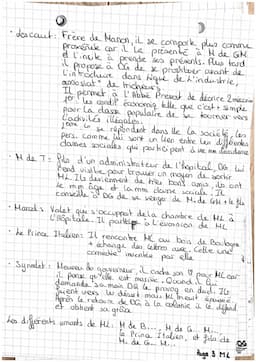 • Lescaut: Frère de Manon, il se comporte plus comme
proxénète car il le présente à M de GM
et l'incite à prendre ses présents. Plus tard
il propose à DG de se prostituer avant de
l'introduire dans ligue de l'industrie,
associat° de tricheurs
Il permet à l'Abbé Prévost de décrire 2
1°: les condit° économiq telle que c'est + simple
pour la classe populaire de se tourner vers
l'activités illégales.
se répendent dans la société, les
pers. comme lui sont un lien entre les différentes
classes sociales qui participent à
• M de T: fils d'un administrateur de l'hopital, DG lui
rend visite pour trouver un moyen de sortir
ML. Ils deviennent de très bons amis, ils ont
le m̂ âge et la même classe sociale. Il
conseille à DG de se venger de M de GM + le fils
• Marcel: Valet qui s'occupait de la chambre de ML à
l'Hôpital. Il participe à l'évasion de ML
• Le Prince Italien: Il rencontre ML au bois de Boulogne
+ échange des lettres avec. Cette une
comédie montée par elle
• Synnelet: Neveu du gouverneur, il cache son ♡ pour ML car
il pense qu'elle est mariée. Quand il
demande sa main DG le provoq en duel. Ils
fuient vers le désert mais ML meurt épuisée.
Après le retour de DG à la colonie il le défend
et obtient sa grâce
Les différents amants de ML: M de B..., M de G... M...,
le Prince Italien, et fils de
M. de G... M...
Page 3 ML